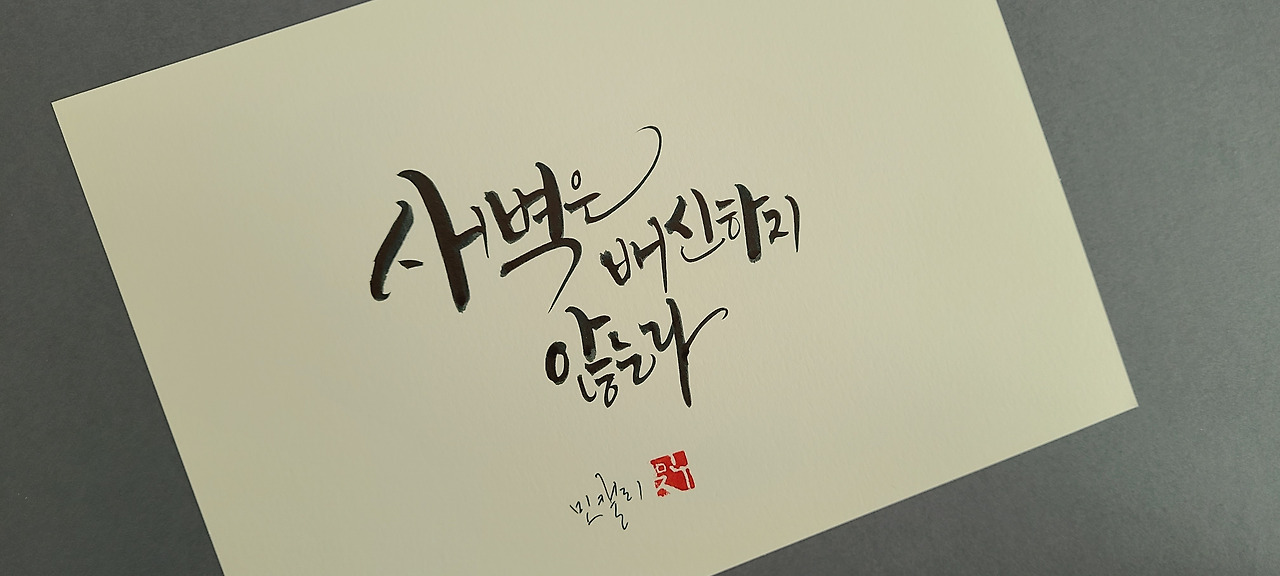 새벽은
배신하지
않는다
민캘리